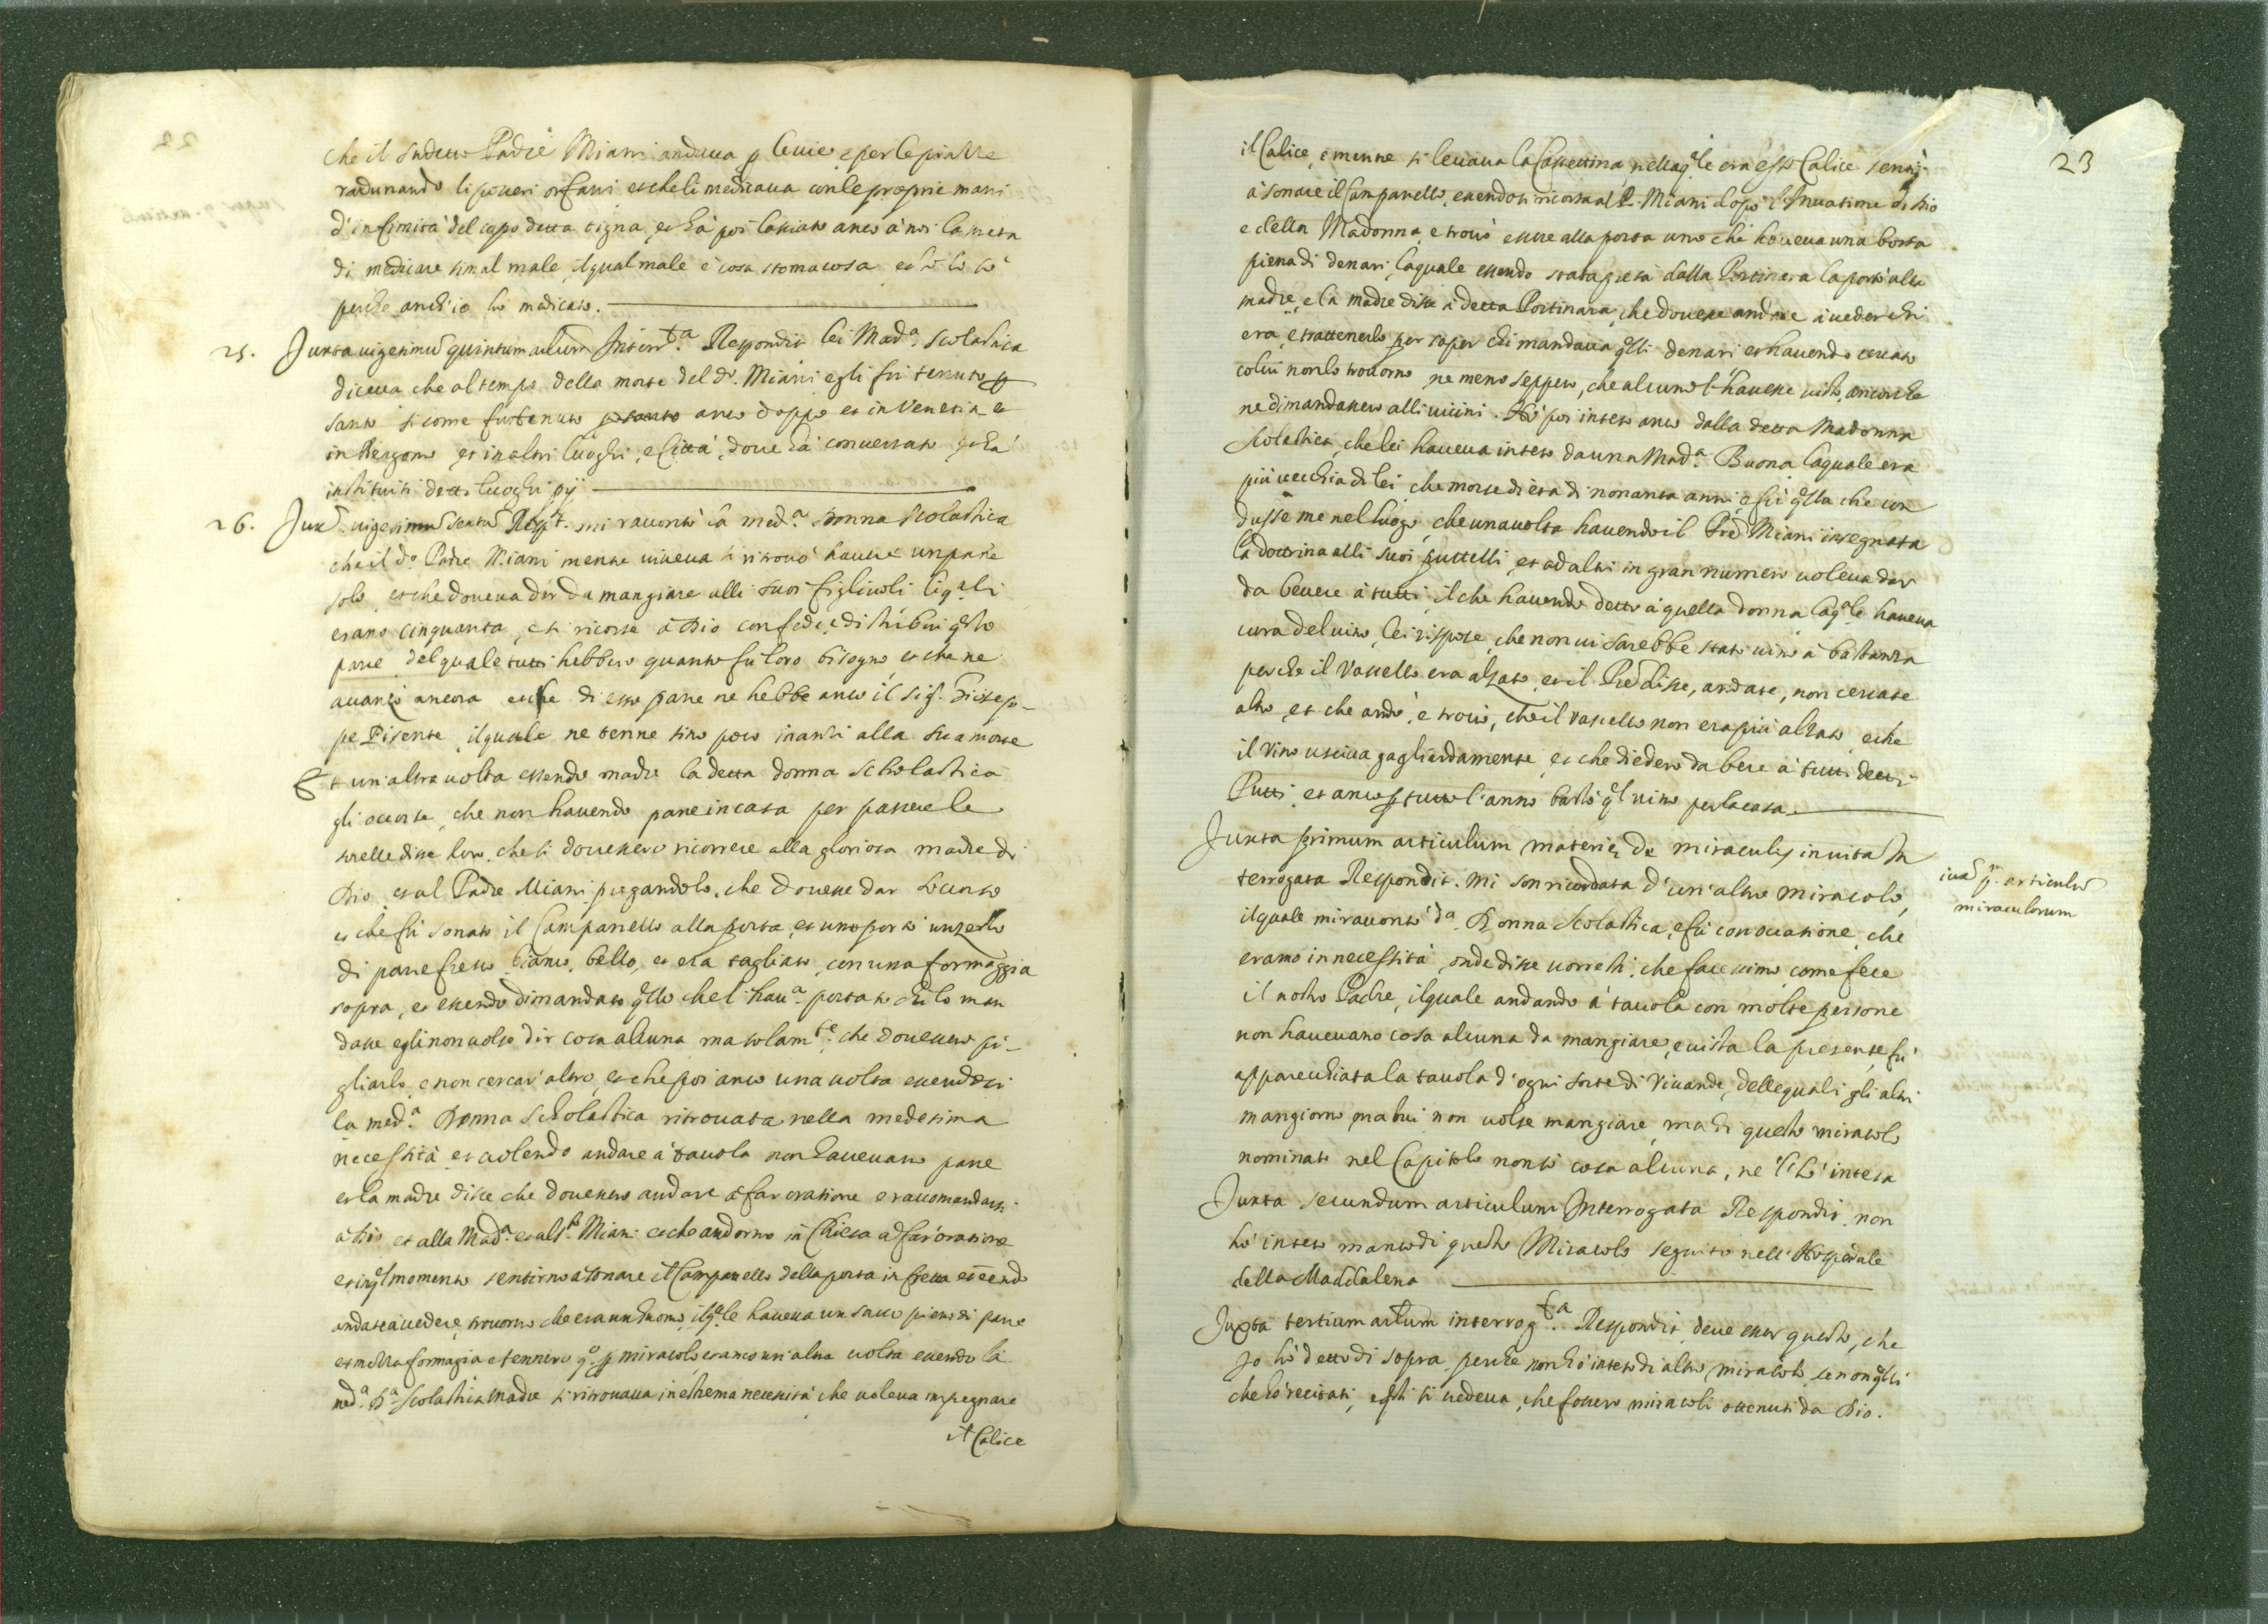 che il sudetto Padre Miani andaua p le uie, e per le piazze
radunando li poueri orfani et che li medicaua con le proprie mani
d'infirmità del capo detta tigna, et hà poi lassato anco à noi la ricetta
di medicare simil male, il qual male è cosa stomacosa et io lo sò
perche anch'io hò medicato.
25. Juxta uigesimũ quintum artlum Interr.ta Respondit lei Mad.a Scolastica
diceua che al tempo della morte del d.o Miani egli fu tenuto p
santo si come fu tenuto anco doppo et in Venetia et
in Bergomo et in altri luoghi, e Città, doue hà conuersato et hà
instituiti detti luoghi pij
26. Jux.a uigesimũ sextũ Resp.t mi racontò la med.a Donna Scolastica
che il d.o Padre Miani mentre uiueua si ritrouò hauere un pane
solo, et che doueua dar da mangiare alli suoi figliuoli li q.ali
erano cinquanta, et si ricorse à Dio con fede, e distribuì q.sto
pane del quale tutti hebbero quanto fu loro bisogno et che ne
auanzò ancora et che di esso pane ne hebbe anco il sig.r Giosep-
pe Pisente il quale ne tenne sino poco inanzi alla sua morte
Et un'altra uolta essendo madre la detta donna Scholastica
gli occorse, che non hauendo pane in casa per pascere le
sorelle disse loro che si douessero ricorrere alla gloriosa madre di
Dio, et al Padre Miani pregandolo, che douesse dar soccorso
et che fù sonato il Campanello alla porta, et uno portò un zerlo
di pane fresco, bianco, bello, et era tagliato, con una formaggia
sopra, et essendo dimandato q.llo che l'hau.a portato chi lo man
dasse egli non uolse dir cosa alcuna ma solam.te che douessero pi-
gliarlo, e non cercar altro, et che poi anco una uolta essendosi
la med.a Donna Scholastica ritrouata nella medesima
necessità et uolendo andare à tauola non haueuano pane
et la madre disse che douessero andare à far oratione e raccomandarsi
à Dio et alla Mad.a et al P. Miani et che andorno in Chiesa a far oratione
et in q.l momento sentirno à sonare il Campanello della porta in fretta et eendo
andate à uedere, trouorno che era un huomo, il q.le haueua un sacco pieno di pane
et meza formagia e tennero q.o p miracolo, et anco un'altra uolta essendo la
med.a D.a Scolastica Madre si ritrouaua in estrema necessità che uoleua impegnare
il Calice
23
il Calice, e mentre si leuaua la Cassettina nella q.le era esso Calice sentì
à sonare il Campanello, essendosi ricorsa al P. Miani dopo l'Inuocatione di Dio
e della Madonna, e trouò essere alla porta uno che haueua una borsa
piena di denari, la quale essendo stata presa dalla Portinara la portò alla
madre, e la madre disse à detta Portinara, che douesse andare à ueder chi
era, e trattenerlo per saper chi mandaua q.lli denari et hauendo cercato
colui non lo trouorno ne meno seppero, che alcuno l'hauesse uisto, ancorche
ne dimandassero alli uicini. Hò poi inteso anco dalla detta Madonna
Scolastica, che lei haueua inteso da una Mad.a Buona la quale era
più uecchia di lei che morse di età di nonanta anni, e fù q.lla che con
dusse me nel luogo, che una uolta hauendo il Pre Miani insegnata
la dottrina alli suoi puttelli, et ad altri in gran numero uoleua dar
da beuere à tutti, il che hauendo detto à quella donna la q.le haueua
cura del uino, lei rispose, che non ui sarebbe stato uino à bastanza
perche il Vassello era alzato, et il Pre disse, andate, non cercate
altro, et che andò, e trouò, che il vassello non era più alzato, e che
il vino usciua gagliardamente et che diedero da bere à tutti detti
Putti, et anco p tutto l'anno bastò q.l uino per la casa.
Juxta primum articulum materiæ de miraculis in uita In
terrogata Respondit. mi son ricordata d'un'altro miracolo,
il quale mi racontò d.a Donna Scolastica, e fù con occasione, che
eramo in necessità, onde disse uorresti, che facessimo, come fece
il nostro Padre, il quale andando à tauola con molte persone
non haueuano cosa alcuna da mangiare, e uista la presente fù
apparecchiata la tauola d'ogni sorte di Viuande, delle quali gli altri
mangiorno, ma lui non uolse mangiare, ma di questo miracolo
nominato nel Capitolo non sò cosa alcuna, ne l'hò intesa
iux.a p. articulũ
miraculorum
Juxta secundum articulum Interrogata Respondit, non
hò inteso manco di questo Miracolo seguito nell'Hospitale
della Maddalena
Juxta tertium artlum interrog.ta Respondit, deue esser questo, che
Jo hò detto di sopra, perche non hò inteso di altro miracolo, se non q.lli
che hò recitati, e q.sti si uedeua, che fossero miracoli ottenuti da Dio.